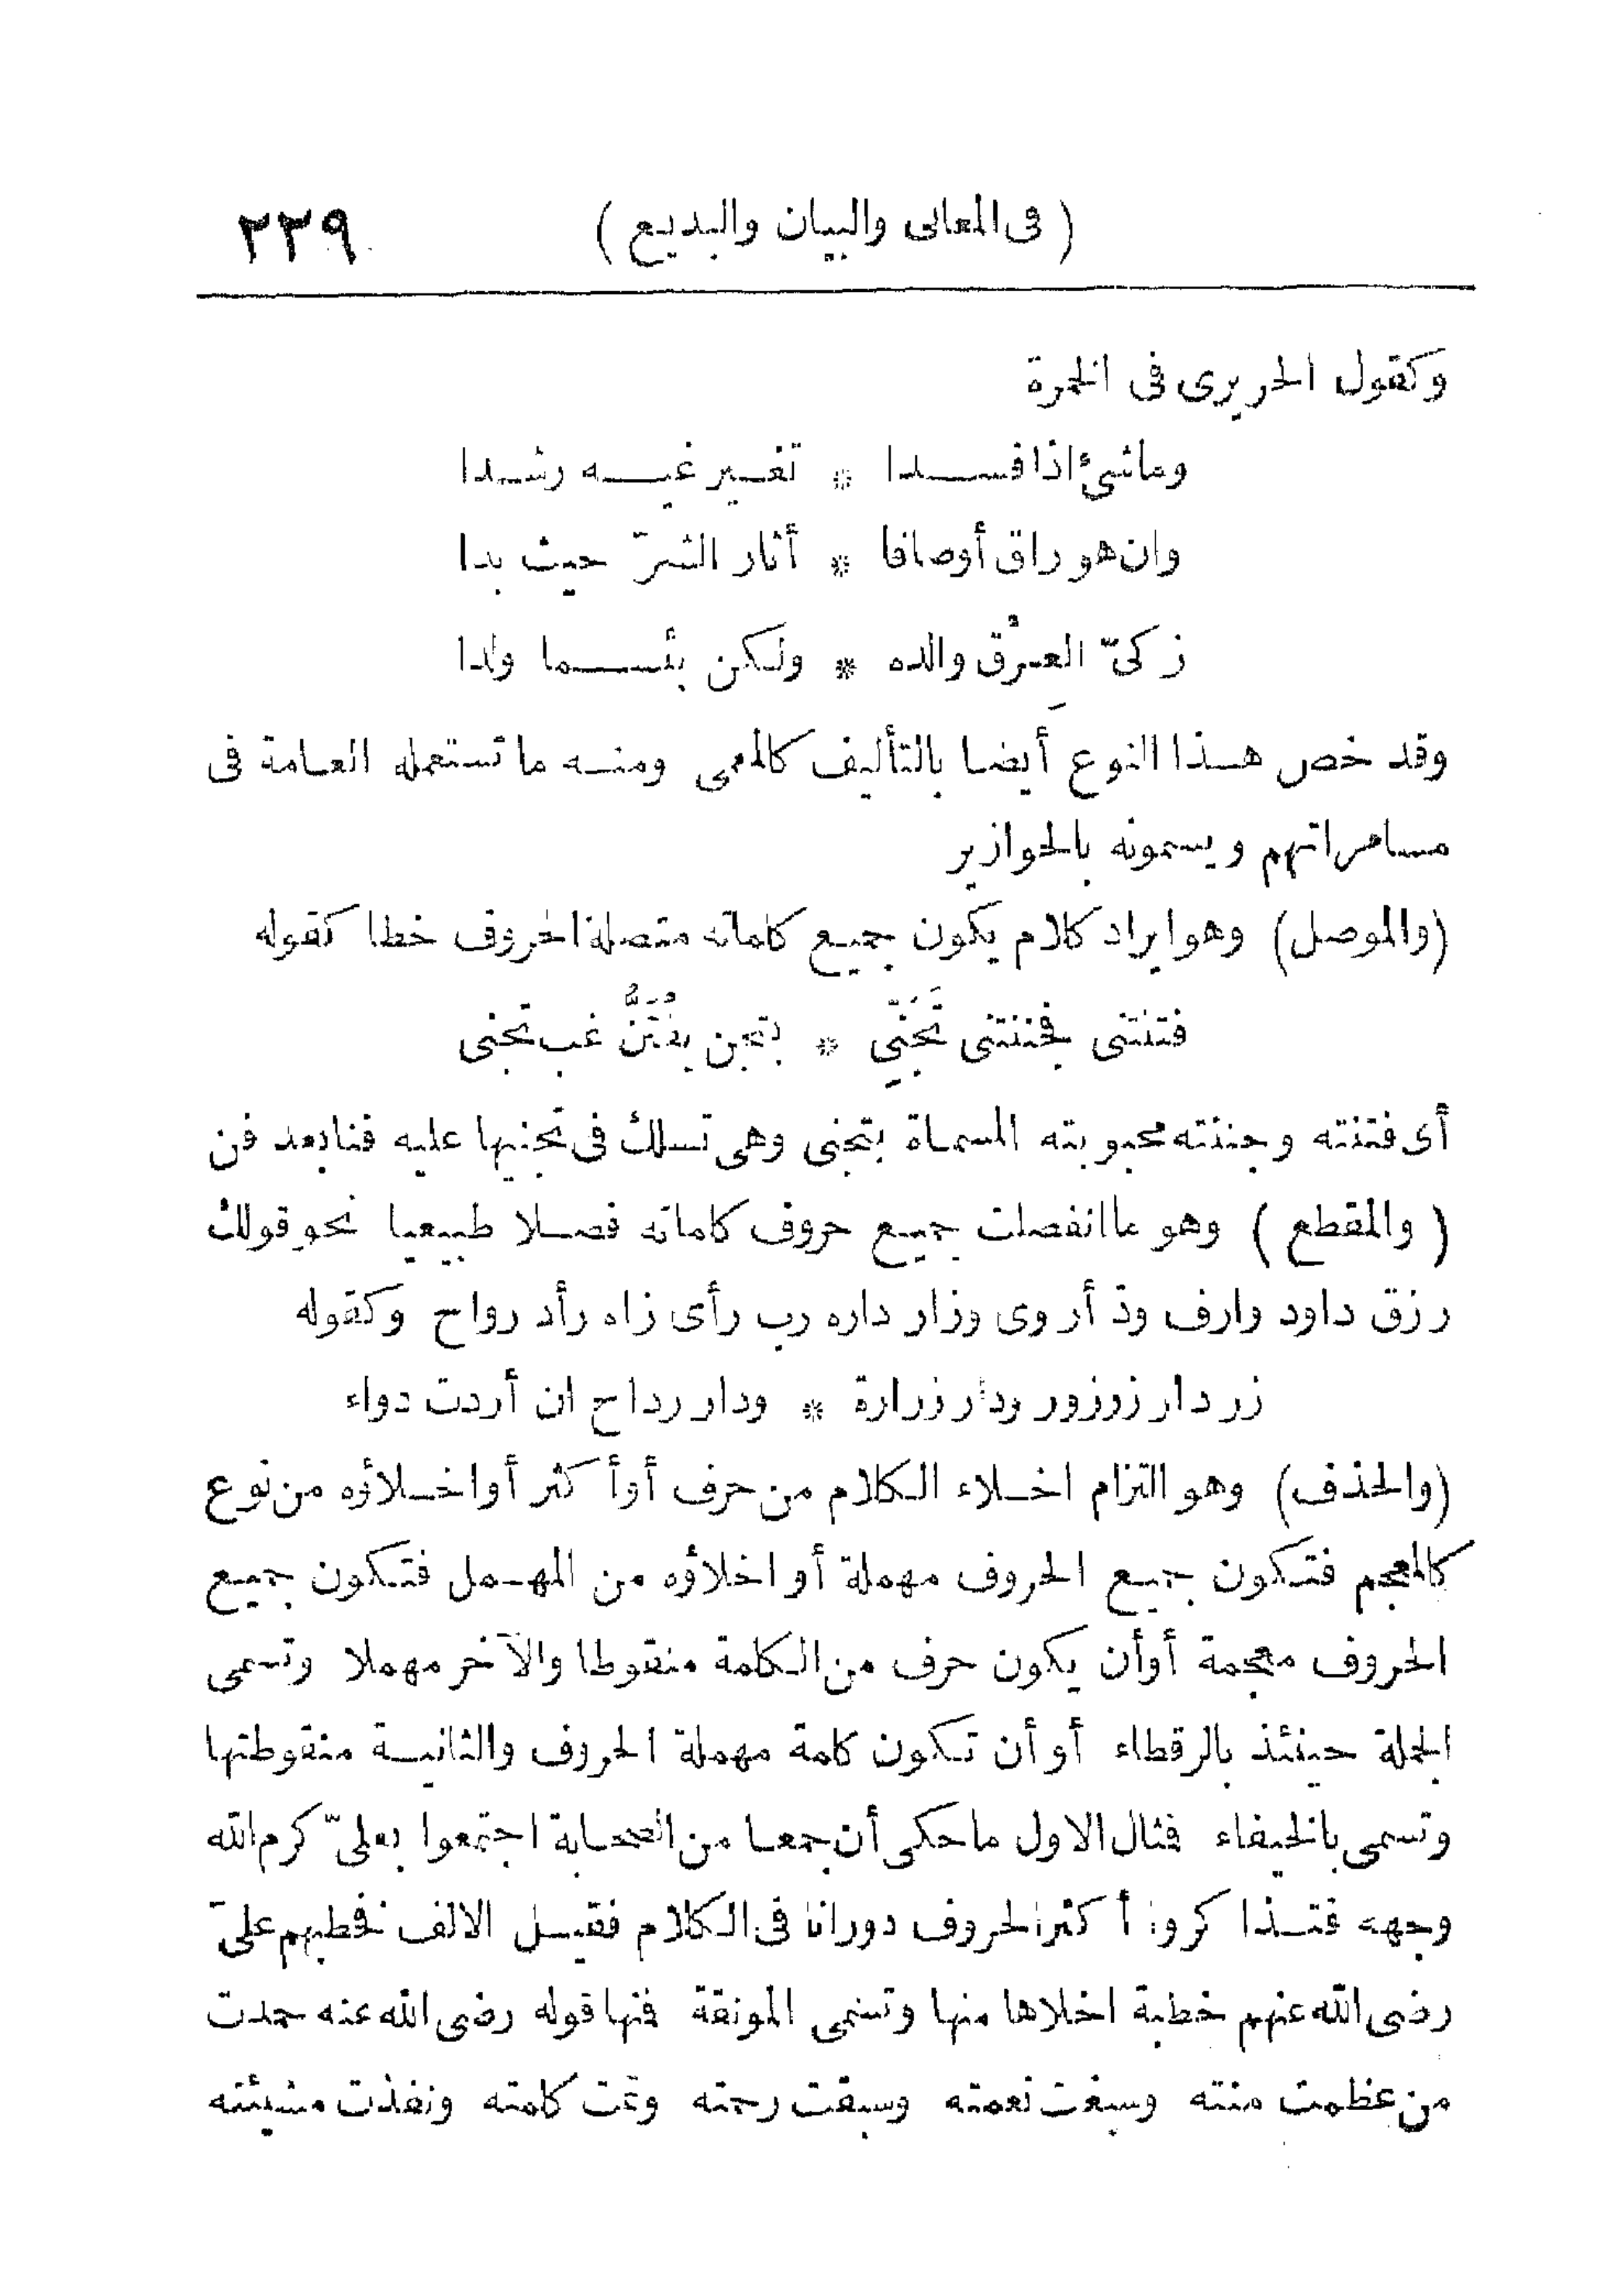 (فى المعانى والبيان والبديع) ٢٣٩
وكقول الحريرى فى الخمرة
وما شئ اذا فسدا * تغير غيه رشدا
وان هو راق أوصافا * أثار الشرّ حيث بدا
زكىّ العِرْق والده * ولكن بئسما ولدا
وقد خص هذا النوع أيضا بالتأليف كالمعمى ومنه ما تستعمله العامة فى
مسامراتهم ويسمونه بالحوازير
(والموصل) وهو ايراد كلام يكون جميع كلماته متصلة الحروف خطا كقوله
فتنتنى فجننتنى تَجَنّى * بتجن يفُتَنُّ غب تجنى
أى فتنته وجننته محبوبته المسماة بتجنى وهى تسلك فى تجنيها عليه فنا بعد فن
(والمقطع) وهو ما انفصلت جميع حروف كلماته فصلا طبيعيا نحو قولك
رزق داود وارف ودّ أروى وزار داره رب رأى زاه رأد رواح وكقوله
زر دار زرزور ودار زرارة * ودار رداح ان أردت دواء
(والحذف) وهو التزام اخلاء الكلام من حرف أو أكثر أو اخلاؤه من نوع
كالمعجم فتكون جميع الحروف مهملة أو اخلاؤه من المهمل فتكون جميع
الحروف معجمة أو أن يكون حرف من الكلمة منقوطا والآخر مهملا وتسمى
الجملة حينئذ بالرقطاء أو أن تكون كلمة مهملة الحروف والثانية منقوطتها
وتسمى بالخيفاء فمثال الاول ما حكى أن جمعا من الصحابة اجتمعوا بعلىّ كرم الله
وجهه فتذاكروا أكثر الحروف دورانا فى الكلام فقيل الالف فخطبهم علىّ
رضى الله عنهم خطبة اخلاها منها وتسمى المونقة فمنها قوله رضى الله عنه حمدت
من عظمت منته وسبغت نعمته وسبقت رحمته وتمت كلمته ونفذت مشيئته